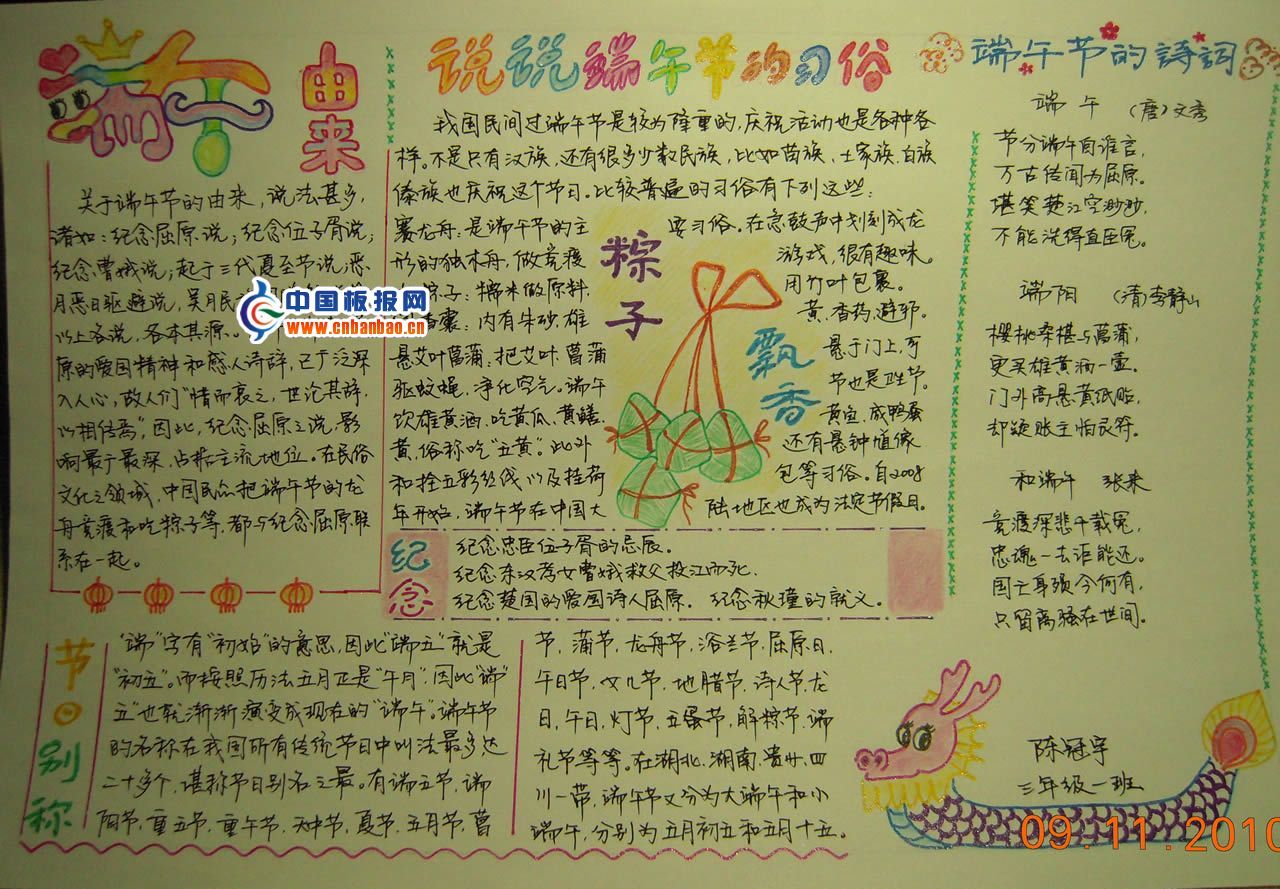 端午
由来
关于端午节的由来，说法甚多，
诸如：纪念屈原说；纪念伍子胥说；
纪念曹娥说；起于三代夏至节说；恶
月恶日驱避说，吴月民
以上各说，各本其源。
原的爱国精神和感人诗辞，已广泛深
入人心，故人们“惜而哀之，世论其辞，
以相传焉”，因此，纪念屈原之说，影
响最广最深，占据主流地位。在民俗
文化之领域，中国民众把端午节的龙
舟竞渡和吃粽子等，都与纪念屈原联
系在一起。
中国板报网
www.cnbanbao.cn
说说端午节的习俗
我国民间过端午节是较为隆重的，庆祝活动也是各种各
样。不是只有汉族，还有很多少数民族，比如苗族、土家族、白族
傣族也庆祝这个节日。比较普遍的习俗有下列这些：
赛龙舟：是端午节的主要习俗。在急鼓声中划刻成龙
形的独木舟，做竞渡游戏，很有趣味。
粽子：糯米做原料，用竹叶包裹。
囊：内有朱砂、雄黄、香药，避邪。
悬艾叶菖蒲：把艾叶、菖蒲悬于门上，可
驱蚊蝇，净化空气。端午节也是卫生节。
饮雄黄酒、吃黄瓜、黄鳝、黄鱼、咸鸭蛋
黄，俗称吃“五黄”。此外还有悬钟馗像
和拴五彩丝线以及挂荷包等习俗。自2008
年开始，端午节在中国大陆地区也成为法定节假日。
粽子
飘香
纪念
纪念忠臣伍子胥的忌辰。
纪念东汉孝女曹娥救父投江而死.
纪念楚国的爱国诗人屈原. 纪念秋瑾的就义。
端午节的诗词
端 午 （唐）文秀
节分端午自谁言，
万古传闻为屈原。
堪笑楚江空渺渺，
不能洗得直臣冤。
端阳 （清）李静山
樱桃桑椹与菖蒲，
更买雄黄酒一壶。
门外高悬黄纸贴，
却疑账主怕灵符。
和端午 张耒
竞渡深悲千载冤，
忠魂一去讵能还。
国亡身殒今何有，
只留离骚在世间。
节日别称
“端”字有“初始”的意思，因此“端五”就是
“初五”。而按照历法五月正是“午月”，因此“端
五”也就渐渐演变成现在的“端午”。端午节
的名称在我国所有传统节日中叫法最多达
二十多个，堪称节日别名之最。有端五节、端
阳节、重五节、重午节、天中节、夏节、五月节、菖
节、蒲节、龙舟节、浴兰节、屈原日、
午日节、女儿节、地腊节、诗人节、龙
日、午日、灯节、五蛋节、解粽节、端
礼节等等。在湖北、湖南、贵州、四
川一带，端午节又分为大端午和小
端午，分别为五月初五和五月十五。
陈冠宇
三年级一班
09.11.2010